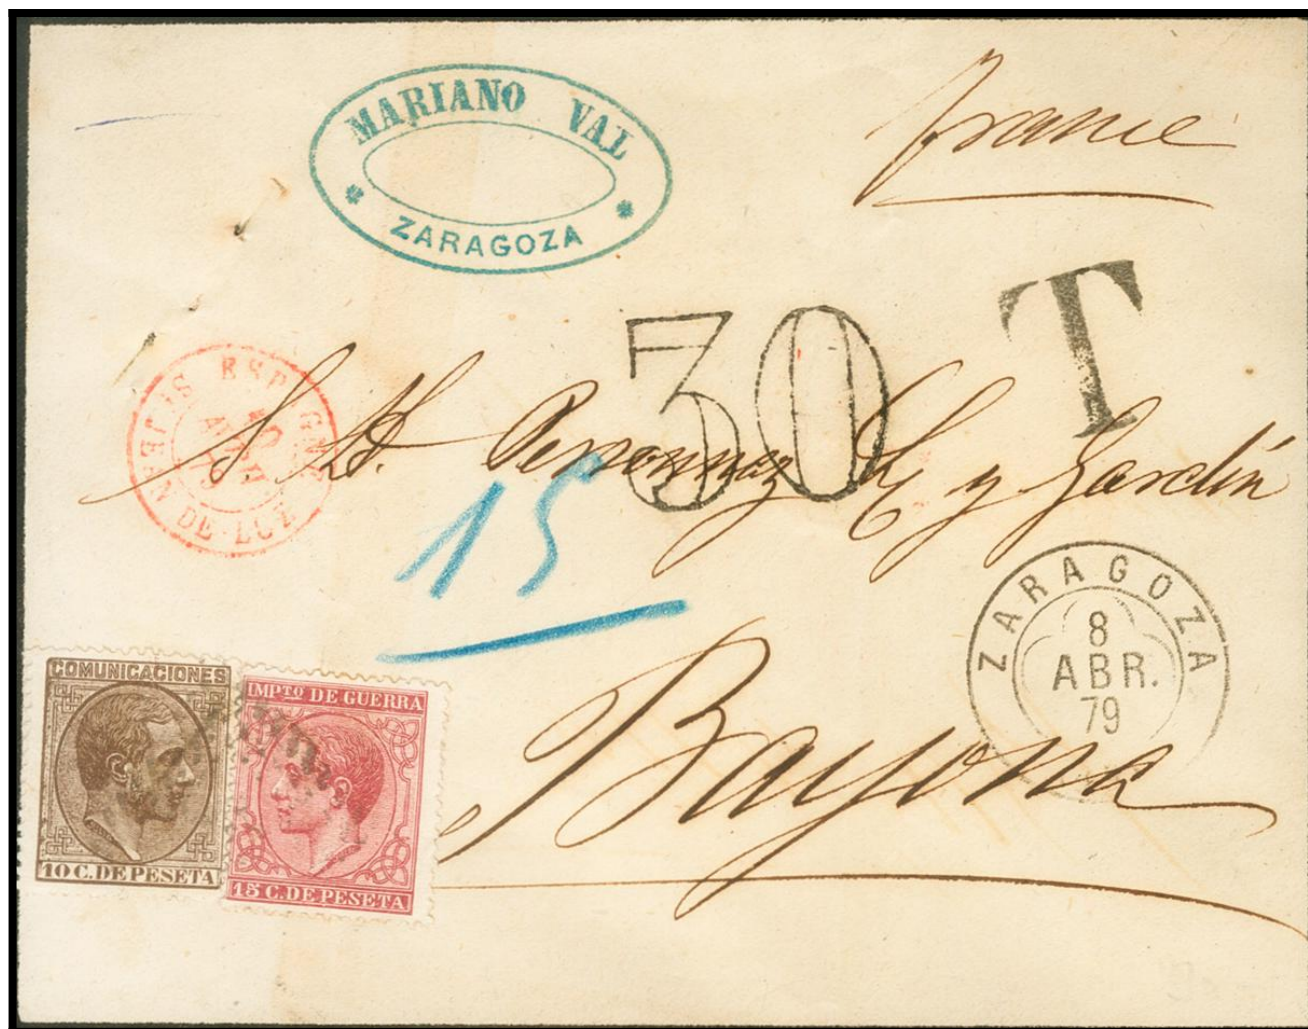 MARIANO VAL
ZARAGOZA
France
30
T
ESPAGNE
AVRIL
ST JEAN DE LUZ
S. D. y Jardin
15
ZARAGOZA
8
ABR.
79
Bayona
COMUNICACIONES
10 C. DE PESETA
IMPTO DE GUERRA
15 C. DE PESETA